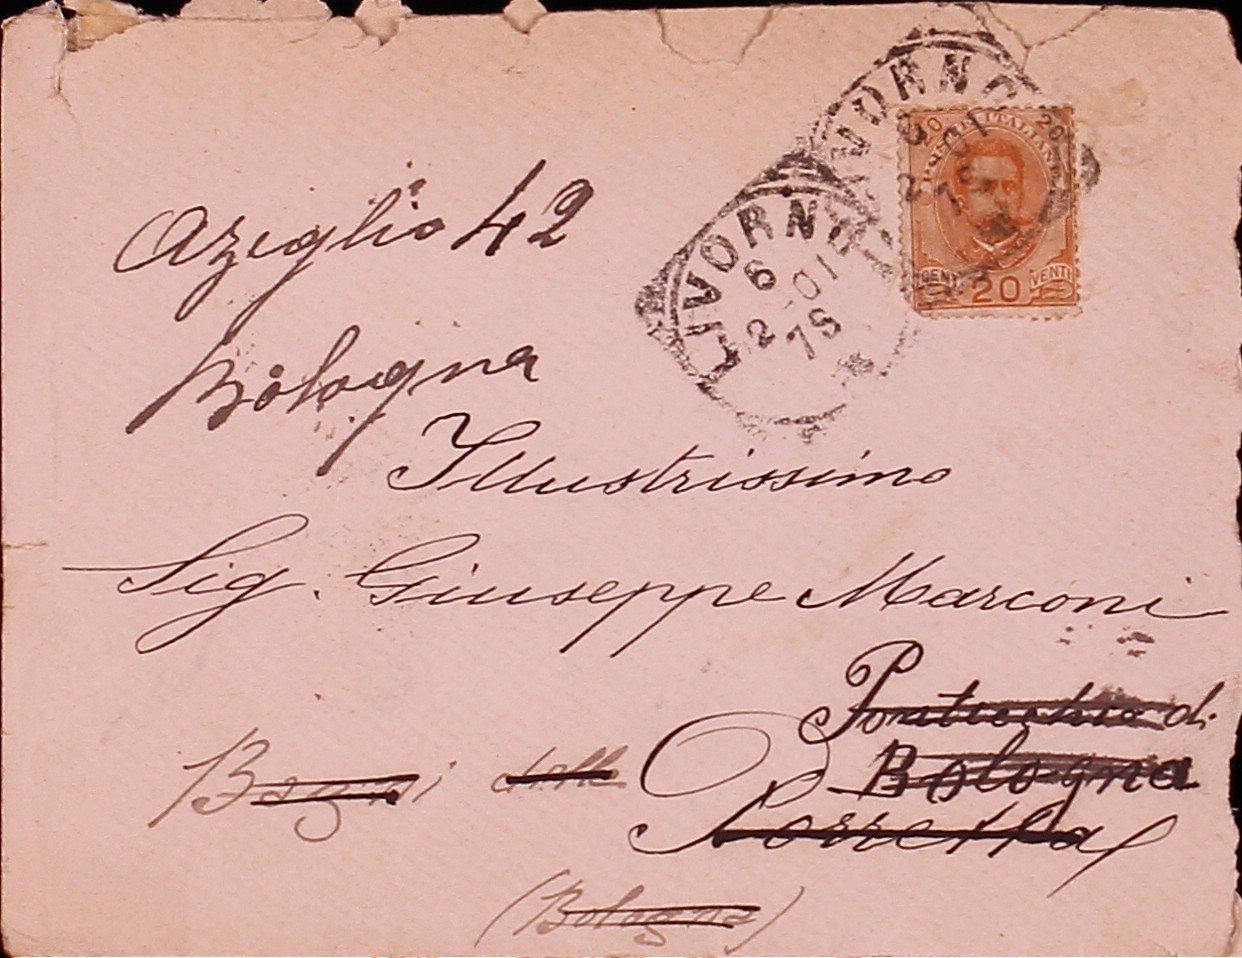 LIVORNO
6
2 01
7S
LIVORNO
6
2 01
7S
20 20
POSTE ITALIANE
CENT. 20 VENTI
Aziglio 42
Bologna
Illustrissimo
Sig. Giuseppe Marconi
Pontecchio di
Bologna
Bagni della Porretta
(Bologna)